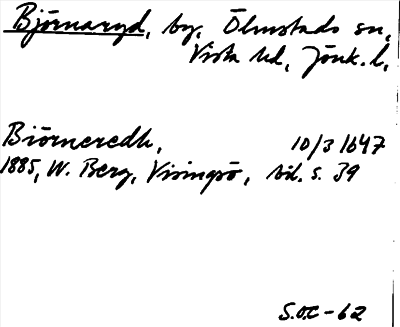 Björnaryd, by, Ölmstads sn,
Vista hd, Jönk. l,
Biörneredh, 10/3 1647
1885, W. Berg, Visingsö, bil. s. 39
S.O.C-62